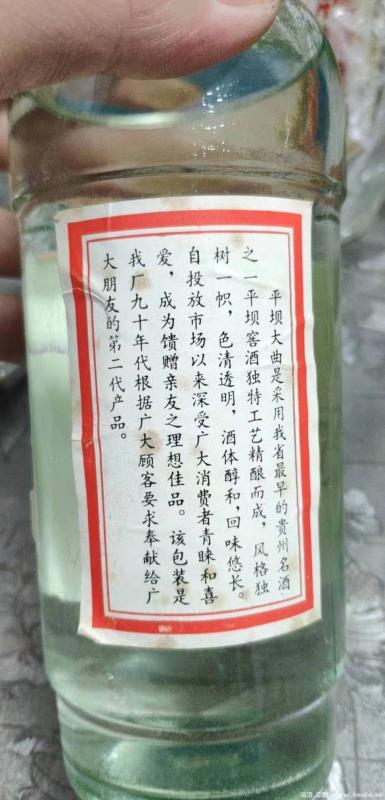 平坝大曲是采用我省最早的贵州名酒
之一平坝窖酒独特工艺精酿而成，风格独
树一帜，色清透明，酒体醇和，回味悠长。
自投放市场以来深受广大消费者青睐和喜
爱，成为馈赠亲友之理想佳品。该包装是
我厂九十年代根据广大顾客要求奉献给广
大朋友的第二代产品。